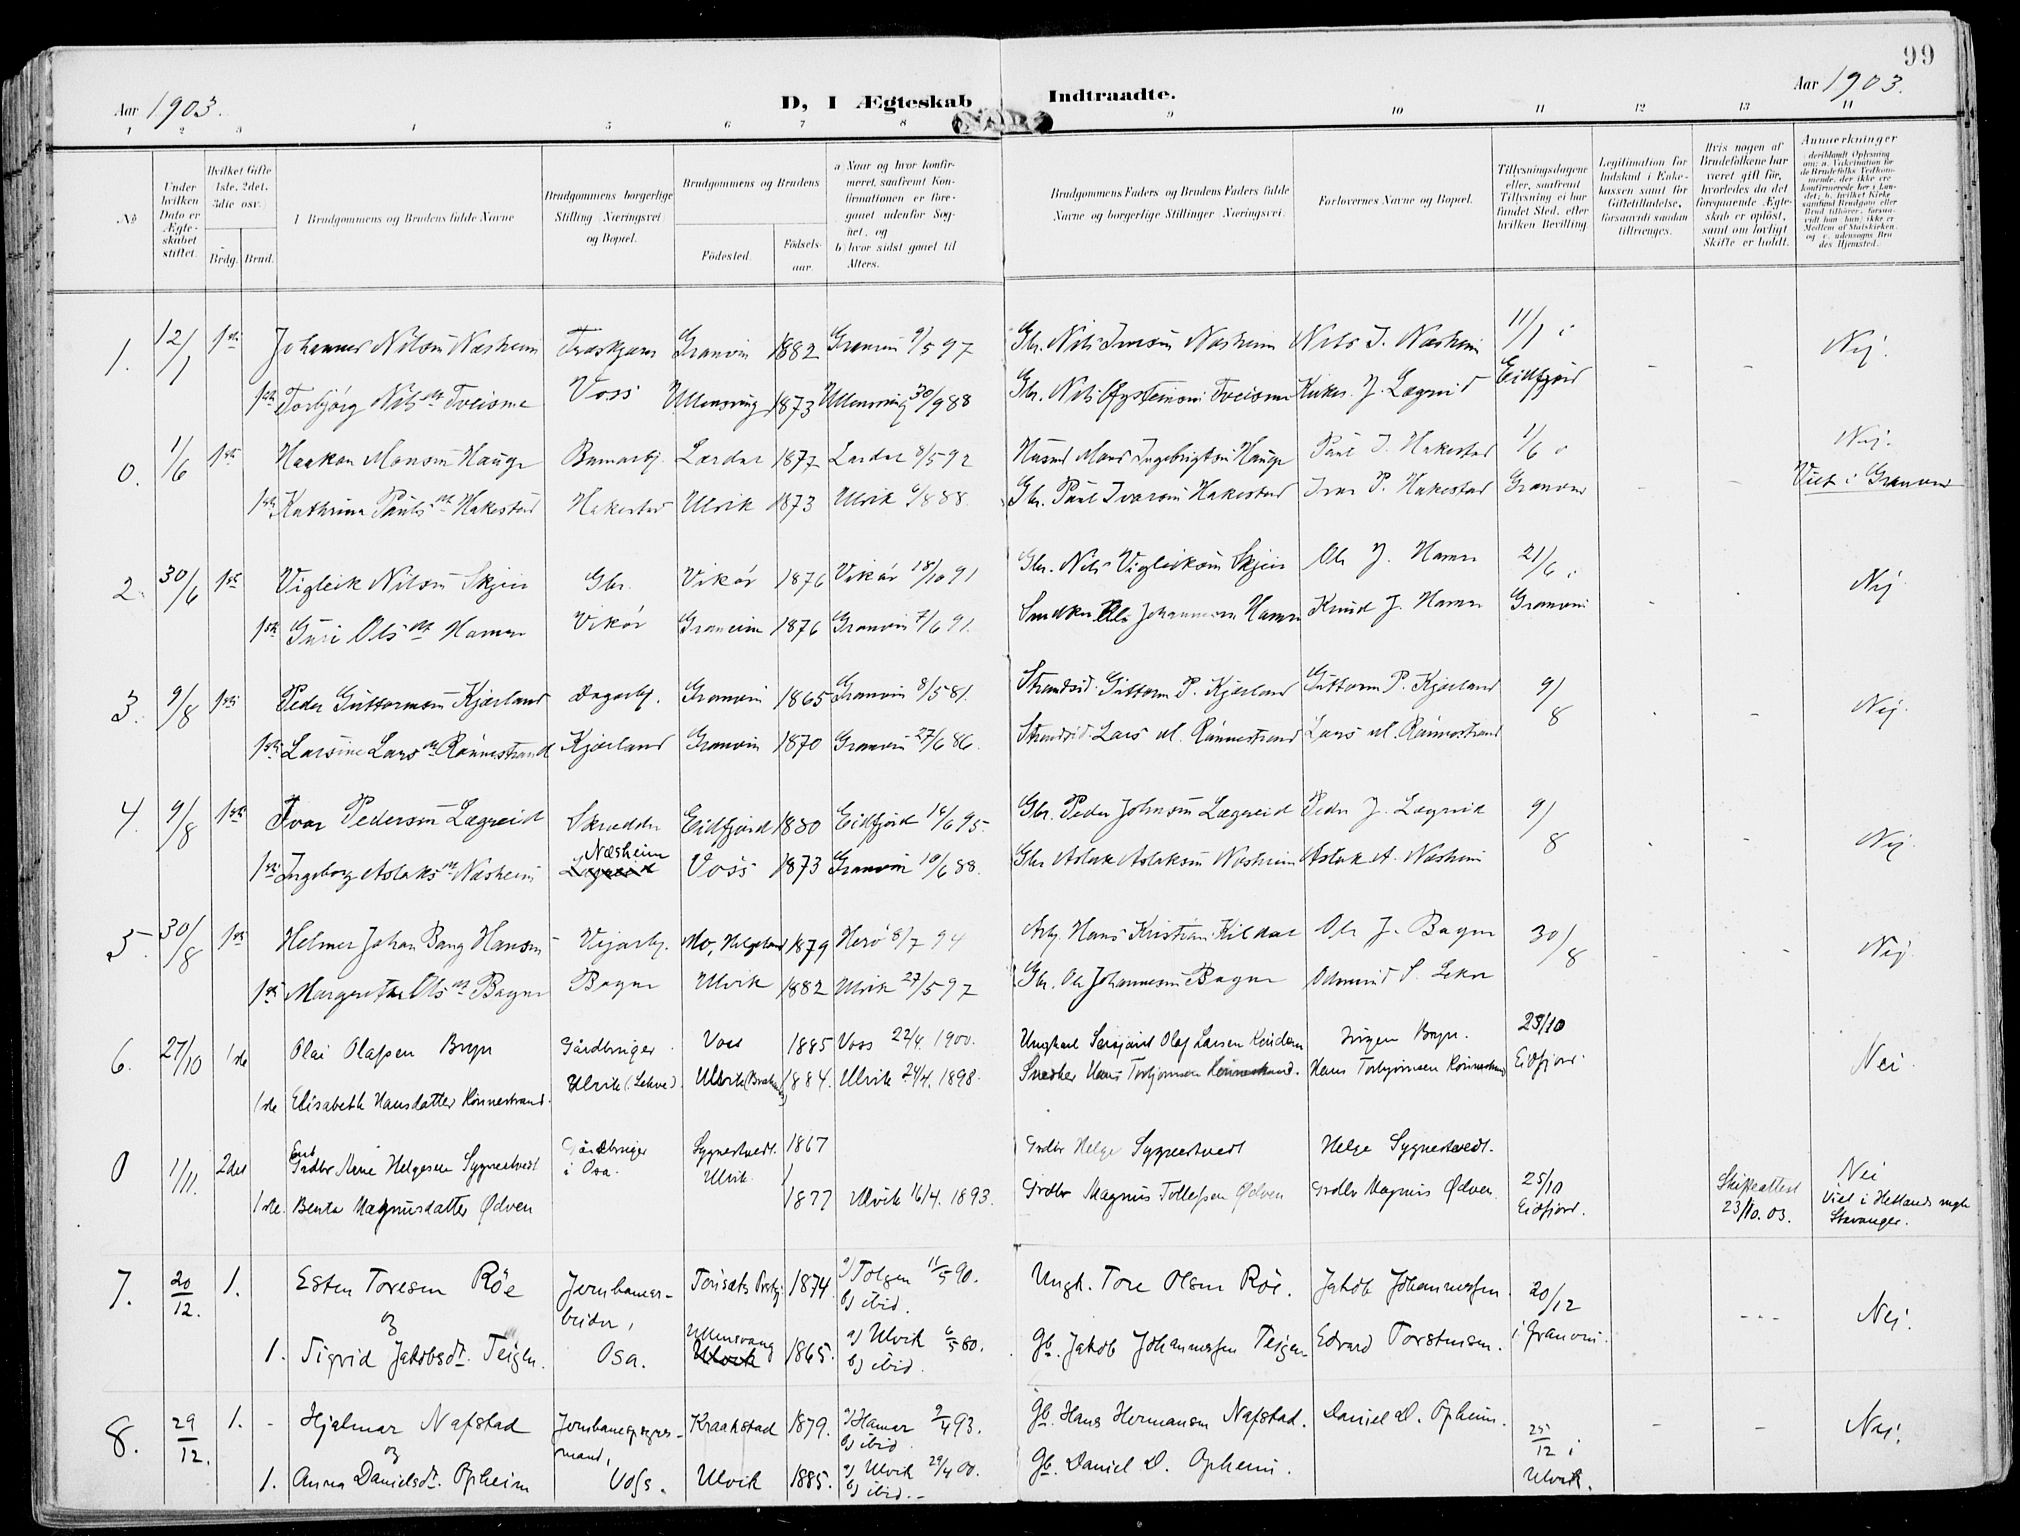 99
Aar 1903.
D, I Ægteskab Indtraadte.
Aar 1903.
1 2 3 4 5 6 7 8 9 10 11 12 13 14
No
Under hvilken Dato er Ægteskabet stiftet.
Hvilket Gifte 1ste, 2det, 3die osv.
Brdg. Brud.
Brudgommens og Brudens fulde Navne
Brudgommens borgerlige Stilling (Næringsvei) og Bopæl.
Brudgommens og Brudens
Födested.
Födselsaar.
a) Naar og hvor konfirmeret, saafremt Konfirmationen er foregaaet udenfor Sognet, og
b) hvor sidst gaaet til Alters.
Brudgommens Faders og Brudens Faders fulde Navne og borgerlige Stillinger (Næringsvei).
Forlovernes Navne og Bopæl.
Tillysningsdagene eller, saafremt Tillysning ei har fundet Sted, efter hvilken Bevilling
Legitimation for Indskud i Enkekassen samt for Giftetilladelse, forsaavidt saadan tiltrænges.
Hvis nogen af Brudefolkene har været gift för, hvorledes da det foregaaende Ægteskab er oplöst, samt om lovligt Skifte er holdt.
Anmærkninger
1. 12/1 1ste Johannes Nilsen Næsheim Granvin 1882 Granvin 9/5 97 Gbr. Nils Iversen Næsheim Nils I. Næsheim 11/1 i Nej.
1ste Torbjörg Nilsdtr Tveisme Voss Ullensvang 1873 Ullensvang 30/9 88 Gbr. Nils Øysteinsen Tveisme J. Lægreid Eidfjord
0. 1/6 1ste Haakon Monsen Hauge Lærdal 1877 Lærdal 8/5 92 Husmd Mons Ingebrigtsen Hauge Paul I. Hakestad 1/6 i Nej.
1ste Kathrina Paulsdtr Hakestad Hakestad Ulvik 1873 Ulvik 6/8 88. Gbr. Paul Ivarsen Hakestad Ivar P. Hakestad Granvin Viet i Granvin
2. 30/6 1ste Vigleik Nilsen Skjeie Gbr. Vikör 1876 Vikör 18/10 91 Gbr. Nils Vigleiksen Skjeie Ole J. Hamre 21/6 i Nej
1ste Guri Olsdtr Hamre Vikör Granvin 1876 Granvin 7/6 91. Snedker Ole Johannesen Hamre Knud J. Hamre Granvin
3. 9/8 1ste Peder Guttormsen Kjærland Dagarb. Granvin 1865 Granvin 8/5 81. Strandsid. Guttorm P. Kjærland Guttorm P. Kjærland 9/8 Nej.
1ste Larsine Larsdtr Rönnestrand Kjærland Granvin 1870 Granvin 27/6 86. Strandsid Lars M. Rönnestrand Lars M. Rönnestrand
4. 9/8 1ste Ivar Pedersen Lægreid Skrædder Eidfjord 1880 Eidfjord 16/6 95. Gbr. Peder Johnsen Lægreid Peder J. Lægreid 9/8 Nej
1ste Ingeborg Aslaksdtr Næsheim Næsheim Lægreid Voss 1873 Granvin 10/6 88. Gbr Aslak Aslaksen Næsheim Aslak A. Næsheim
5. 30/8 1ste Helmer Johan Bang Hansen Vejarb. Mo, Helgeland 1879 Herö 8/7 94 Arb. Hans Kristian Kildal Ole J. Bagne 30/8 Nej
1ste Margrethe Olsdtr Bagne Bagne Ulvik 1882 Ulvik 27/5 97 Gbr. Ole Johannesen Bagne Odmund S. Lekve
6. 27/10 1ste Olai Olafsen Bryn Gårdbruger Voss 1885 Voss 22/4 1900. Ungkarl Olaf Larsen Jörgen Bryn. 23/10 Nei.
1ste Elisabeth Hansdatter Rönnestrand. Ulvik (Lekve) Ulvik 1884. Ulvik 24/4. 1898. Snedker Hans Torbjörnsen Rönnestrand. Hans Torbjörnsen Rönnestrand Eidfjord.
0 1/11. 2det Grdbr Arne Helgesen Sygnestvedt Gårdbruger i Osa. Sygnestvedt. Ulvik 1867 Grdbr Helge Sygnestvedt Helge Sygnestvedt. Nei
1ste. Berta Magnusdatter Ødven 1877 Ulvik 16/4. 1893. Grdbr Magnus Tollefsen Ødven Grdbr Magnus Ødven. 25/10 Eidfjord. Skifteattest 23/10. 03. Viet i Hetlands mgh Stavanger.
7. 20/12. 1. Esten Toresen Röe Jernbanearbeider, 1874 a) Tolgen 11/5 90. b) ibid. Ungk. Tore Olsen Röe. Jakob Johannessen. 20/12 --- Nei.
og
1. Sigrid Jakobsdt. Teigen. Osa. Ullensvang Ulvik 1865. a) Ulvik 6/5 80. b) ibid. Gb. Jakob Johannessen Teigen Edvard Torstensen. i Granvin.
8. 29/12. 1. - Hjalmar Nafstad Jernbaneopsynsmand, Kraakstad 1879. a) Hamar 2/4 93. b) ibid. Gb. Hans Hermansen Nafstad. Daniel D. Opheim. 25/12 i Nei.
og
1. Anna Danielsdt. Opheim Voss. Ulvik 1885. a) Ulvik 29/4 00. b) ibid. Gb. Daniel D. Opheim. Ulvik.